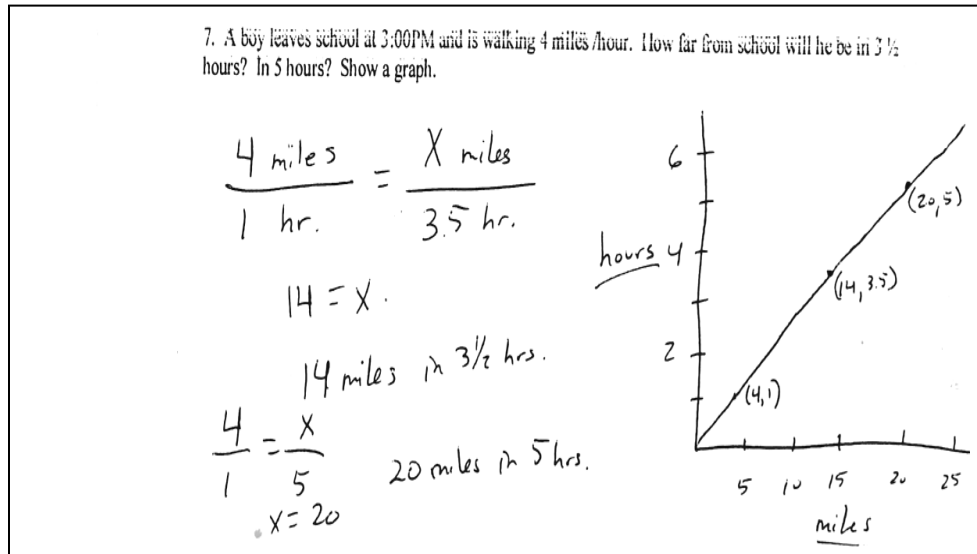 7. A boy leaves school at 3:00PM and is walking 4 miles /hour. How far from school will he be in 3 ½
hours? In 5 hours? Show a graph.
4 miles / 1 hr. = X miles / 3.5 hr.
14 = X.
14 miles in 3½ hrs.
4/1 = X/5
X = 20
20 miles in 5 hrs.
6
hours 4
2
(20,5)
(14,3.5)
(4,1)
5 10 15 20 25
miles